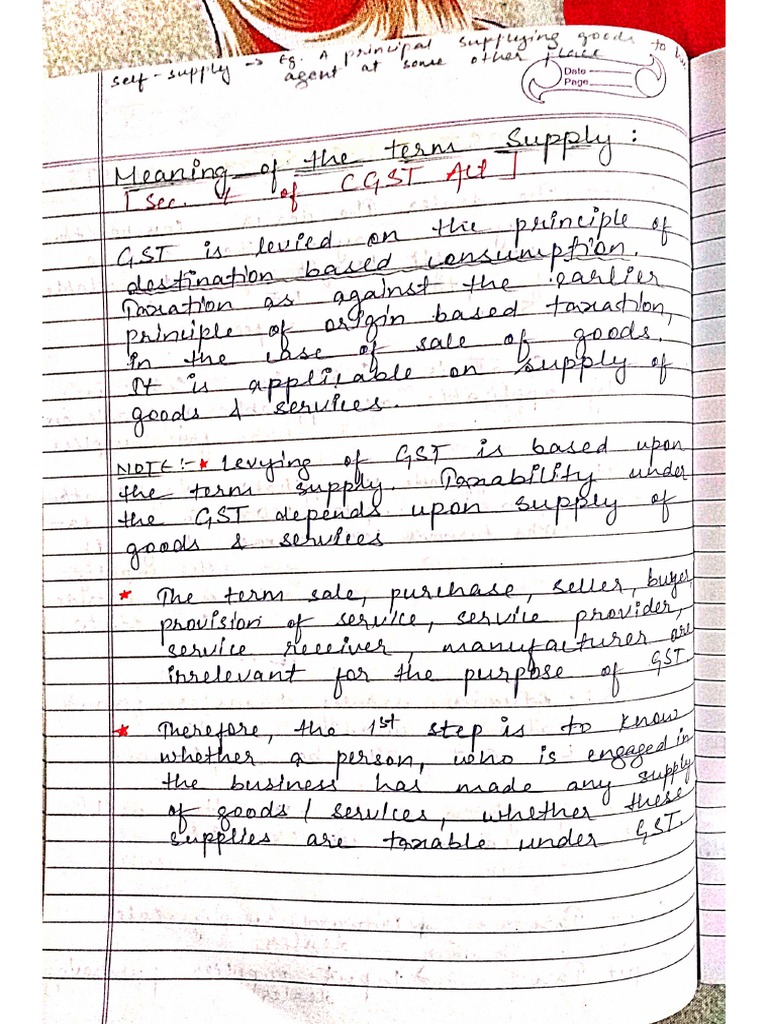 self-supply → Eg. A principal supplying goods to
agent at some other place
Date
Page
Meaning of the term Supply :
[Sec. 4 of CGST Act]
GST is levied on the principle of
destination based consumption.
Taxation as against the earlier
principle of origin based taxation,
in the case of sale of goods.
It is applicable on supply of
goods & services.
NOTE :- * Levying of GST is based upon
the term supply. Taxability under
the GST depends upon supply of
goods & services
* The term sale, purchase, seller, buyer,
provision of service, service provider,
service receiver, manufacturer are
irrelevant for the purpose of GST.
* Therefore, the 1st step is to know
whether a person, who is engaged in
the business has made any supply
of goods / services, whether these
supplies are taxable under GST.